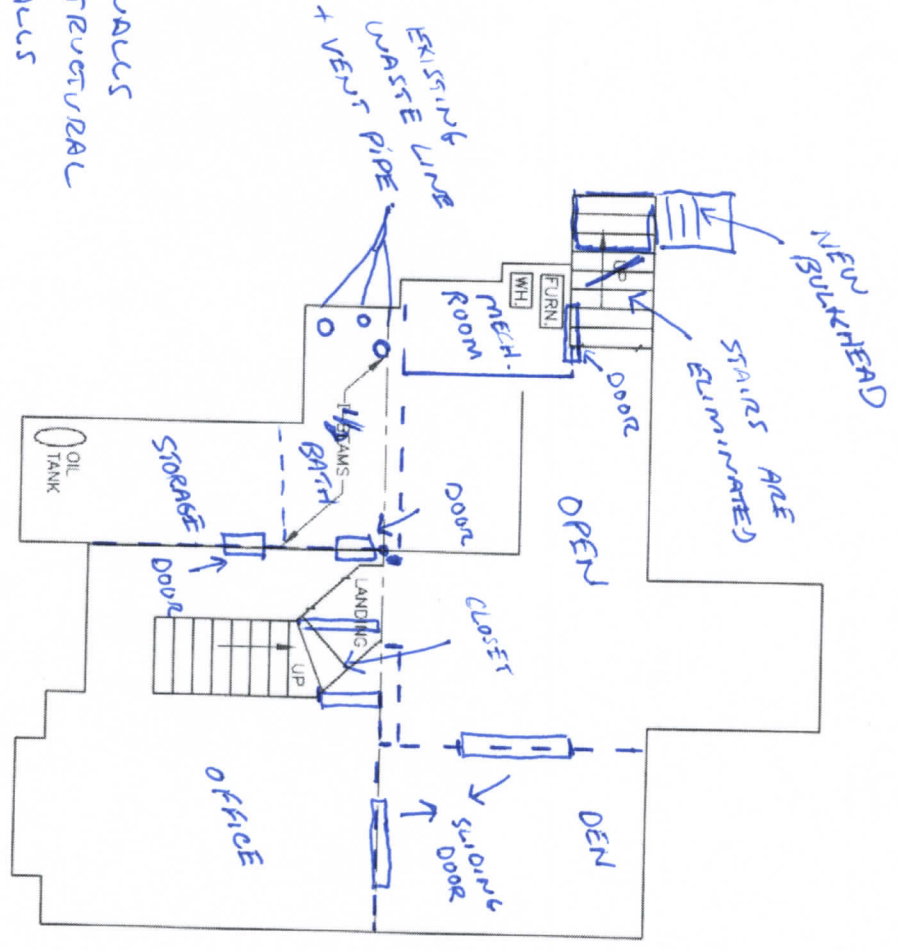 WALLS
STRUCTURAL
WALLS
EXISTING
WASTE LINE
+ VENT PIPE
NEW
BULKHEAD
STAIRS ARE
ELIMINATED
UP
DOOR
FURN.
WH.
MECH.
ROOM
OPEN
I-BEAMS
BATH
DOOR
STORAGE
OIL
TANK
DOOR
LANDING
UP
CLOSET
OFFICE
SLIDING
DOOR
DEN